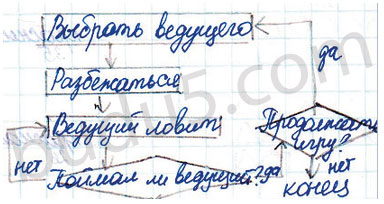 Выбрать ведущего
да
Разбежаться
Ведущий ловит
Продолжать
игру?
нет
Поймал ли ведущий?
да
нет
конец